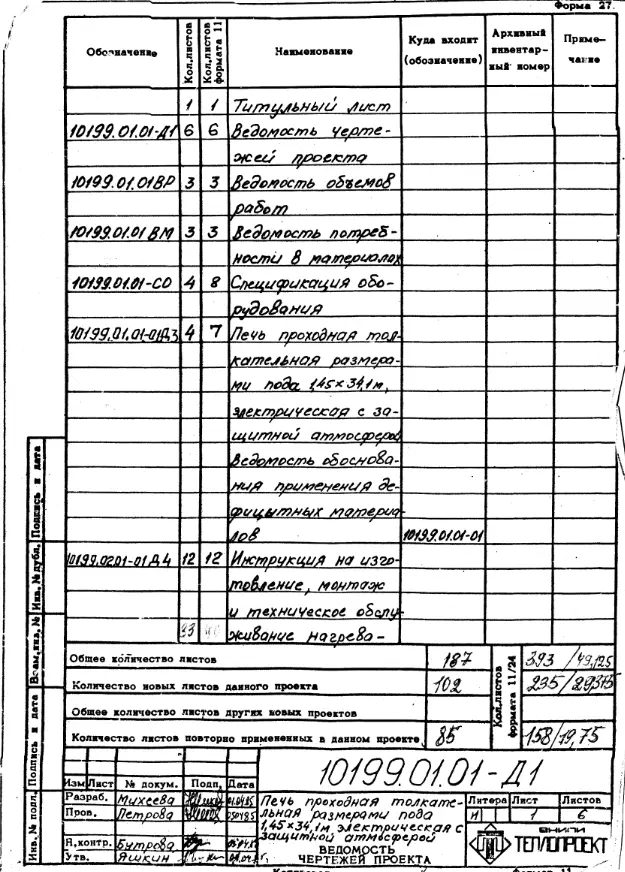 Форма 27.
Обозначение Кол.листов Кол.листов формата 11 Наименование Куда входит (обозначение) Архивный инвентарный номер Примечание
1 1 Титульный лист
10199.01.01-Д1 6 6 Ведомость черте-
жей проекта
10199.01.01ВР 3 3 Ведомость объемов
работ
10199.01.01 ВМ 3 3 Ведомость потреб-
ности в материалах
10199.01.01-СО 4 8 Спецификация обо-
рудования
10199.01.01-01Д3 4 7 Печь проходная тол-
кательная размера-
ми пода 1,45×34,1м,
электрическая с за-
щитной атмосферой
Ведомость обоснова-
ния применения де-
фицытных материа-
лов 10199.01.01-01
10199.02.01-01Д4 12 12 Инструкция на изго-
товление, монтаж
и техническое обслу-
живание нагрева-
Общее количество листов 187
Количество новых листов данного проекта 102
Общее количество листов других новых проектов
Количество листов повторно примененных в данном проекте 85
Кол.листов формата 11/24
393 /49,125
235/29,375
158/19,75
Взам.инв.№ Инв.№ дубл. Подпись и дата
Инв.№ подл. Подпись и дата
10199.01.01-Д1
Изм Лист № докум. Подп. Дата
Разраб. Михеева
Пров. Петрова
Н.контр. Бутрова
Утв. Яшкин
Печь проходная толкате-
льная размерами пода
1,45×34,1м, электрическая с
защитной атмосферой
ВЕДОМОСТЬ
ЧЕРТЕЖЕЙ ПРОЕКТА
Литера Лист Листов
И 1 6
ВНИПИ
ТЕПЛОПРОЕКТ